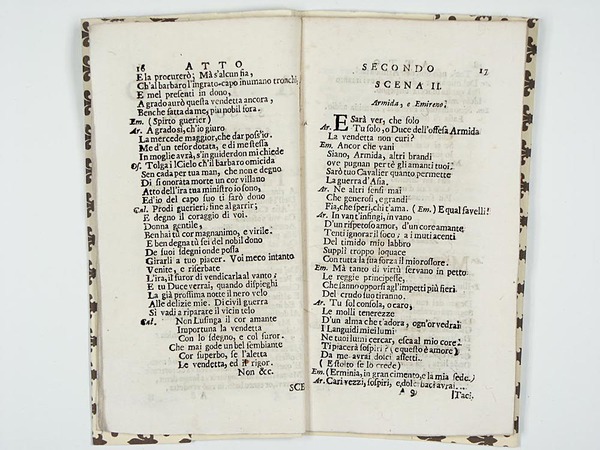 16 ATTO
E la procuterò; Mà s'alcun fia,
Ch'al barbaro l'ingrato capo inumano tronchi,
E mel presenti in dono,
A grado aurò questa vendetta ancora,
Benche fatta da me, piu nobil fora.
Em. (Spirto guerier)
Ar. A grado sì, ch'io giuro
La mercede maggior, che dar poss'io.
Me d'un tesor dotata, e di me stessa
In moglie avrà, s'in guiderdon mi chiede
Of. Tolga il Cielo ch'il barbaro omicida
Sen cada per tua man, che non e degno
Di sì onorata morte un cor villano
Atto dell'ira tua ministro io sono,
Ed io del capo suo ti farò dono
Cal. Prodi guerieri, fine al garrir;
E degno il coraggio di voi.
Donna gentile,
Ben hai tù cor magnanimo, e virile.
E ben degna tù sei del nobil dono
De suoi sdegni onde possa
Girarli a tuo piacer. Voi meco intanto
Venite, e riserbate
L'ira, il furor di vendicarla al vanto:
E tu Duce verrai, quando dispieghi
La già prossima notte il nero velo
Alle delizie mie. Di civil guerra
Si vadi a riparare il vicin telo
Cal. Non Lusinga il cor amante
Importuna la vendetta
Con lo sdegno, e col furor.
Che mai gode un bel sembiante
Cor superbo, se l'aletta
Le vendetta, ed il rigor.
Non &c.
SCE
SECONDO 17
SCENA II.
Armida, e Emireno.
Ar. E Sarà ver, che solo
Tu solo, o Duce dell'offesa Armida
La vendetta non curi?
Em. Ancor che vani
Siano, Armida, altri brandi
ove pugnan per tè gl'amanti tuoi.
Sarò tuo Cavalier quanto permette
La guerra d'Asia.
Ar. Ne altri sensi mai
Che generosi, e grandi
Fia, che speri, chi t'ama. (Em.) E qual favelli!
Ar. In van t'infingi, in vano
D'un rispetoso amor, d'un core amante
Tenti ignorar il foco: a i muti accenti
Del timido mio labbro
Suppli troppo loquace
Con tutta la sua forza il mio rossore.
Em. Mà tanto di virtù servano in petto
Le reggie principesse,
Che sanno opporsi agl'impeti più fieri
Del crudo suo tiranno.
Ar. Tu sol consola, o caro,
Le molli tenerezze
D'un alma che t'adora; ogn'or vedrai
I Languidi miei lumi
Ne tuoi lumi cercar, esca al mio core.
Ti piacerà sospiri? (e questo è amore)
Da me avrai dolci affetti.
(E stolto se lo crede)
Em. (Erminia, in gran cimento, e la mia fede.)
Ar. Cari vezzi, sospiri, e dolci baci avrai...
A 9 [Taci.